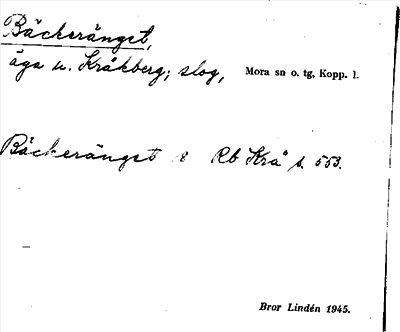 Bäckeränget,
äga u. Kråkberg; slog, Mora sn o. tg, Kopp. l.
Bäckeränget 8 Rb Krå s. 553.
Bror Lindén 1945.